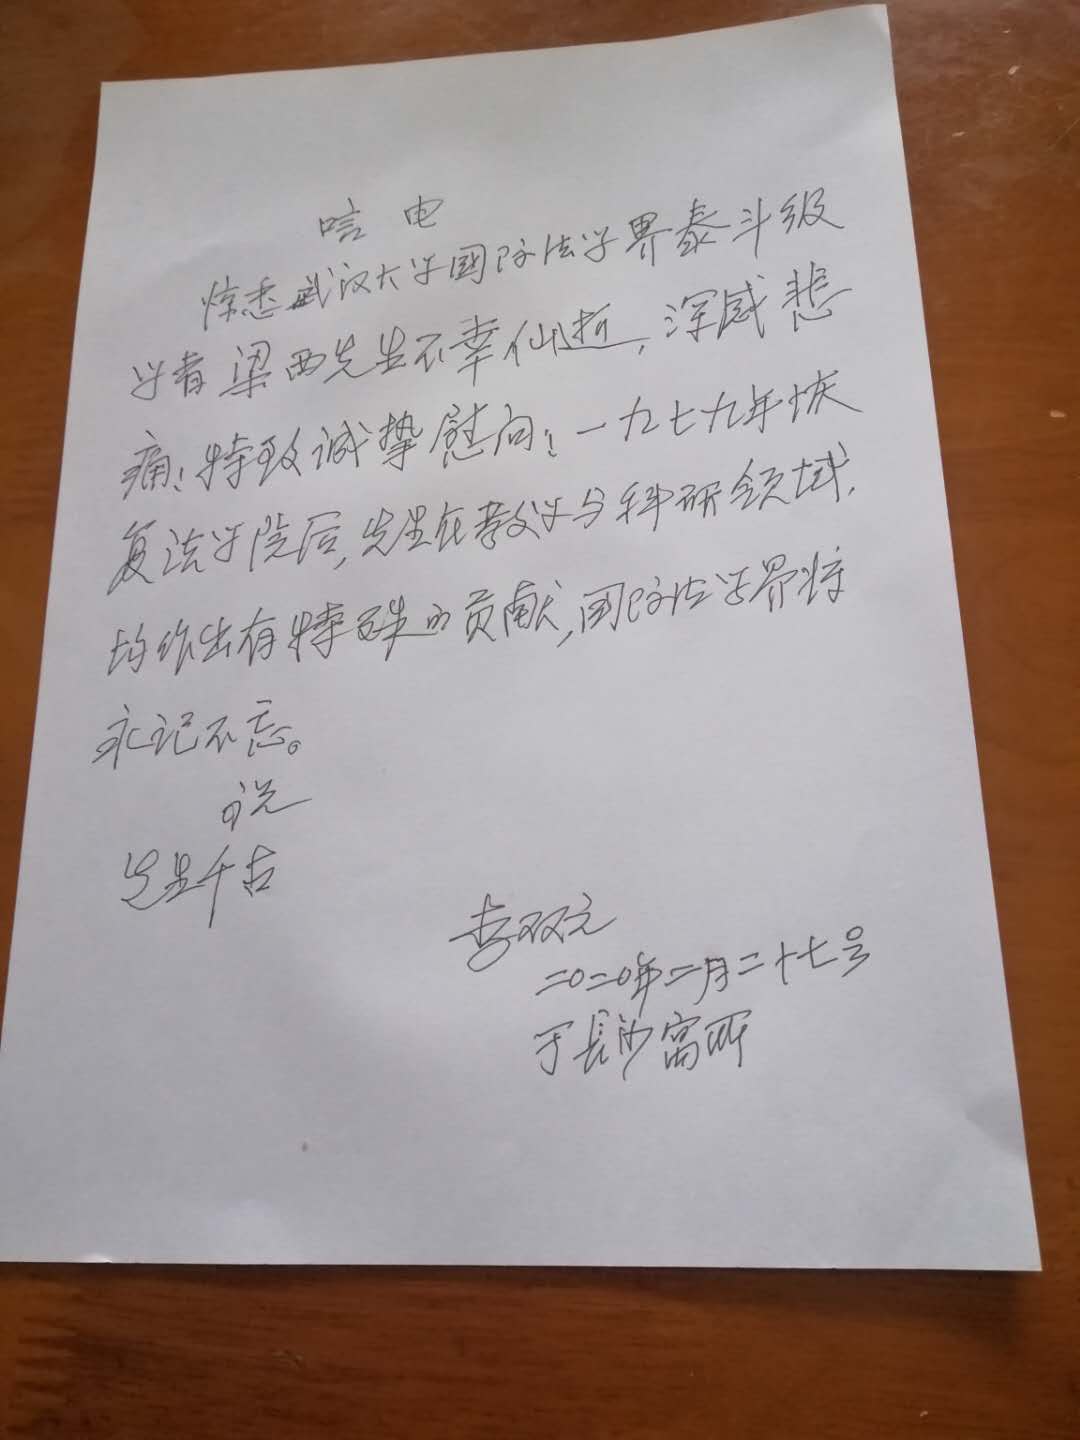 唁电
惊悉武汉大学国际法学界泰斗级
学者梁西先生不幸仙逝,深感悲
痛!特致诚挚慰问!一九七九年恢
复法学院后,先生在教学与科研领域,
均作出有特殊的贡献,国际法学界将
永记不忘。
祝
先生千古
李双元
二〇二〇年二月二十七号
于長沙寓所